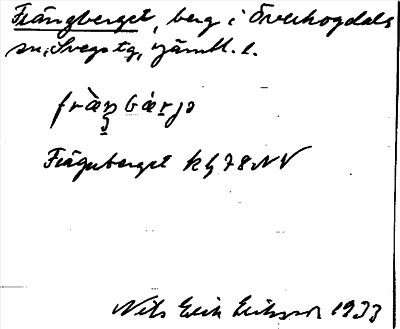 Frängberget, berg i Överhogdals
sn, Svegs tg, Jämtl. l.
fræ̀ŋ bærjə
Frägnberget kg 78 NV
Nils Erik Eriksson 1933